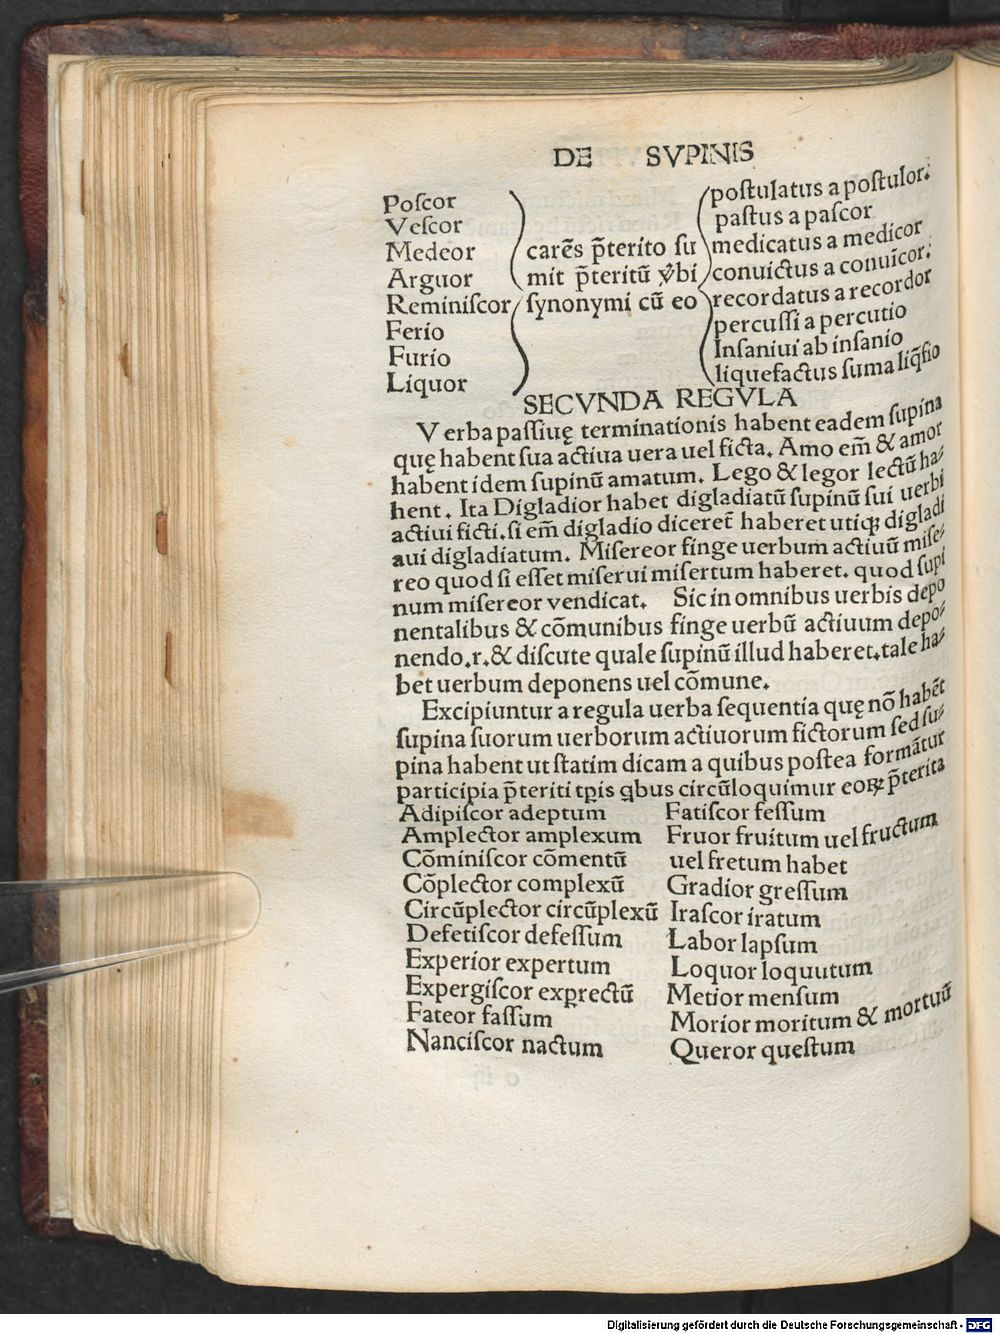 DE SVPINIS
Poſcor
Veſcor
Medeor
Arguor
Reminiſcor
Ferio
Furio
Liquor
carẽs p̃terito ſu
mit p̃teritũ v̉bi
ſynonymi cũ eo
poſtulatus a poſtulor.
paſtus a paſcor
medicatus a medicor
conuictus a conuicor.
recordatus a recordor
percuſſi a percutio
Inſaniui ab inſanio
liquefactus ſum a liq̃fio
SECVNDA REGVLA
Verba paſſiuę terminationis habent eadem ſupina
quę habent ſua actiua uera uel ficta. Amo em̃ & amor
habent idem ſupinũ amatum. Lego & legor lectũ ha⸗
hent. Ita Digladior habet digladiatũ ſupinũ ſui uerbi
actiui ficti. ſi em̃ digladio diceret̃ haberet utiqꝫ digladi
aui digladiatum. Miſereor finge uerbum actiuũ miſe⸗
reo quod ſi eſſet miſerui miſertum haberet. quod ſupi
num miſereor vendicat. Sic in omnibus uerbis depo
nentalibus & cõmunibus finge uerbũ actiuum depo⸗
nendo.r.& diſcute quale ſupinũ illud haberet. tale ha⸗
bet uerbum deponens uel cõmune.
Excipiuntur a regula uerba ſequentia quę nõ habẽt
ſupina ſuorum uerborum actiuorum fictorum ſed ſu⸗
pina habent ut ſtatim dicam a quibus poſtea formãtur
participia p̃teriti tꝑis qbus circũloquimur eoꝝ p̃terita
Adipiſcor adeptum
Amplector amplexum
Cõminiſcor cõmentũ
Cõplector complexũ
Circũplector circũplexũ
Defetiſcor defeſſum
Experior expertum
Expergiſcor exꝑrectũ
Fateor faſſum
Nanciſcor nactum
Fatiſcor feſſum
Fruor fruitum uel fructum
uel fretum habet
Gradior greſſum
Iraſcor iratum
Labor lapſum
Loquor loquutum
Metior menſum
Morior moritum & mortuũ
Queror queſtum
Digitalisierung gefördert durch die Deutsche Forschungsgemeinschaft - DFG